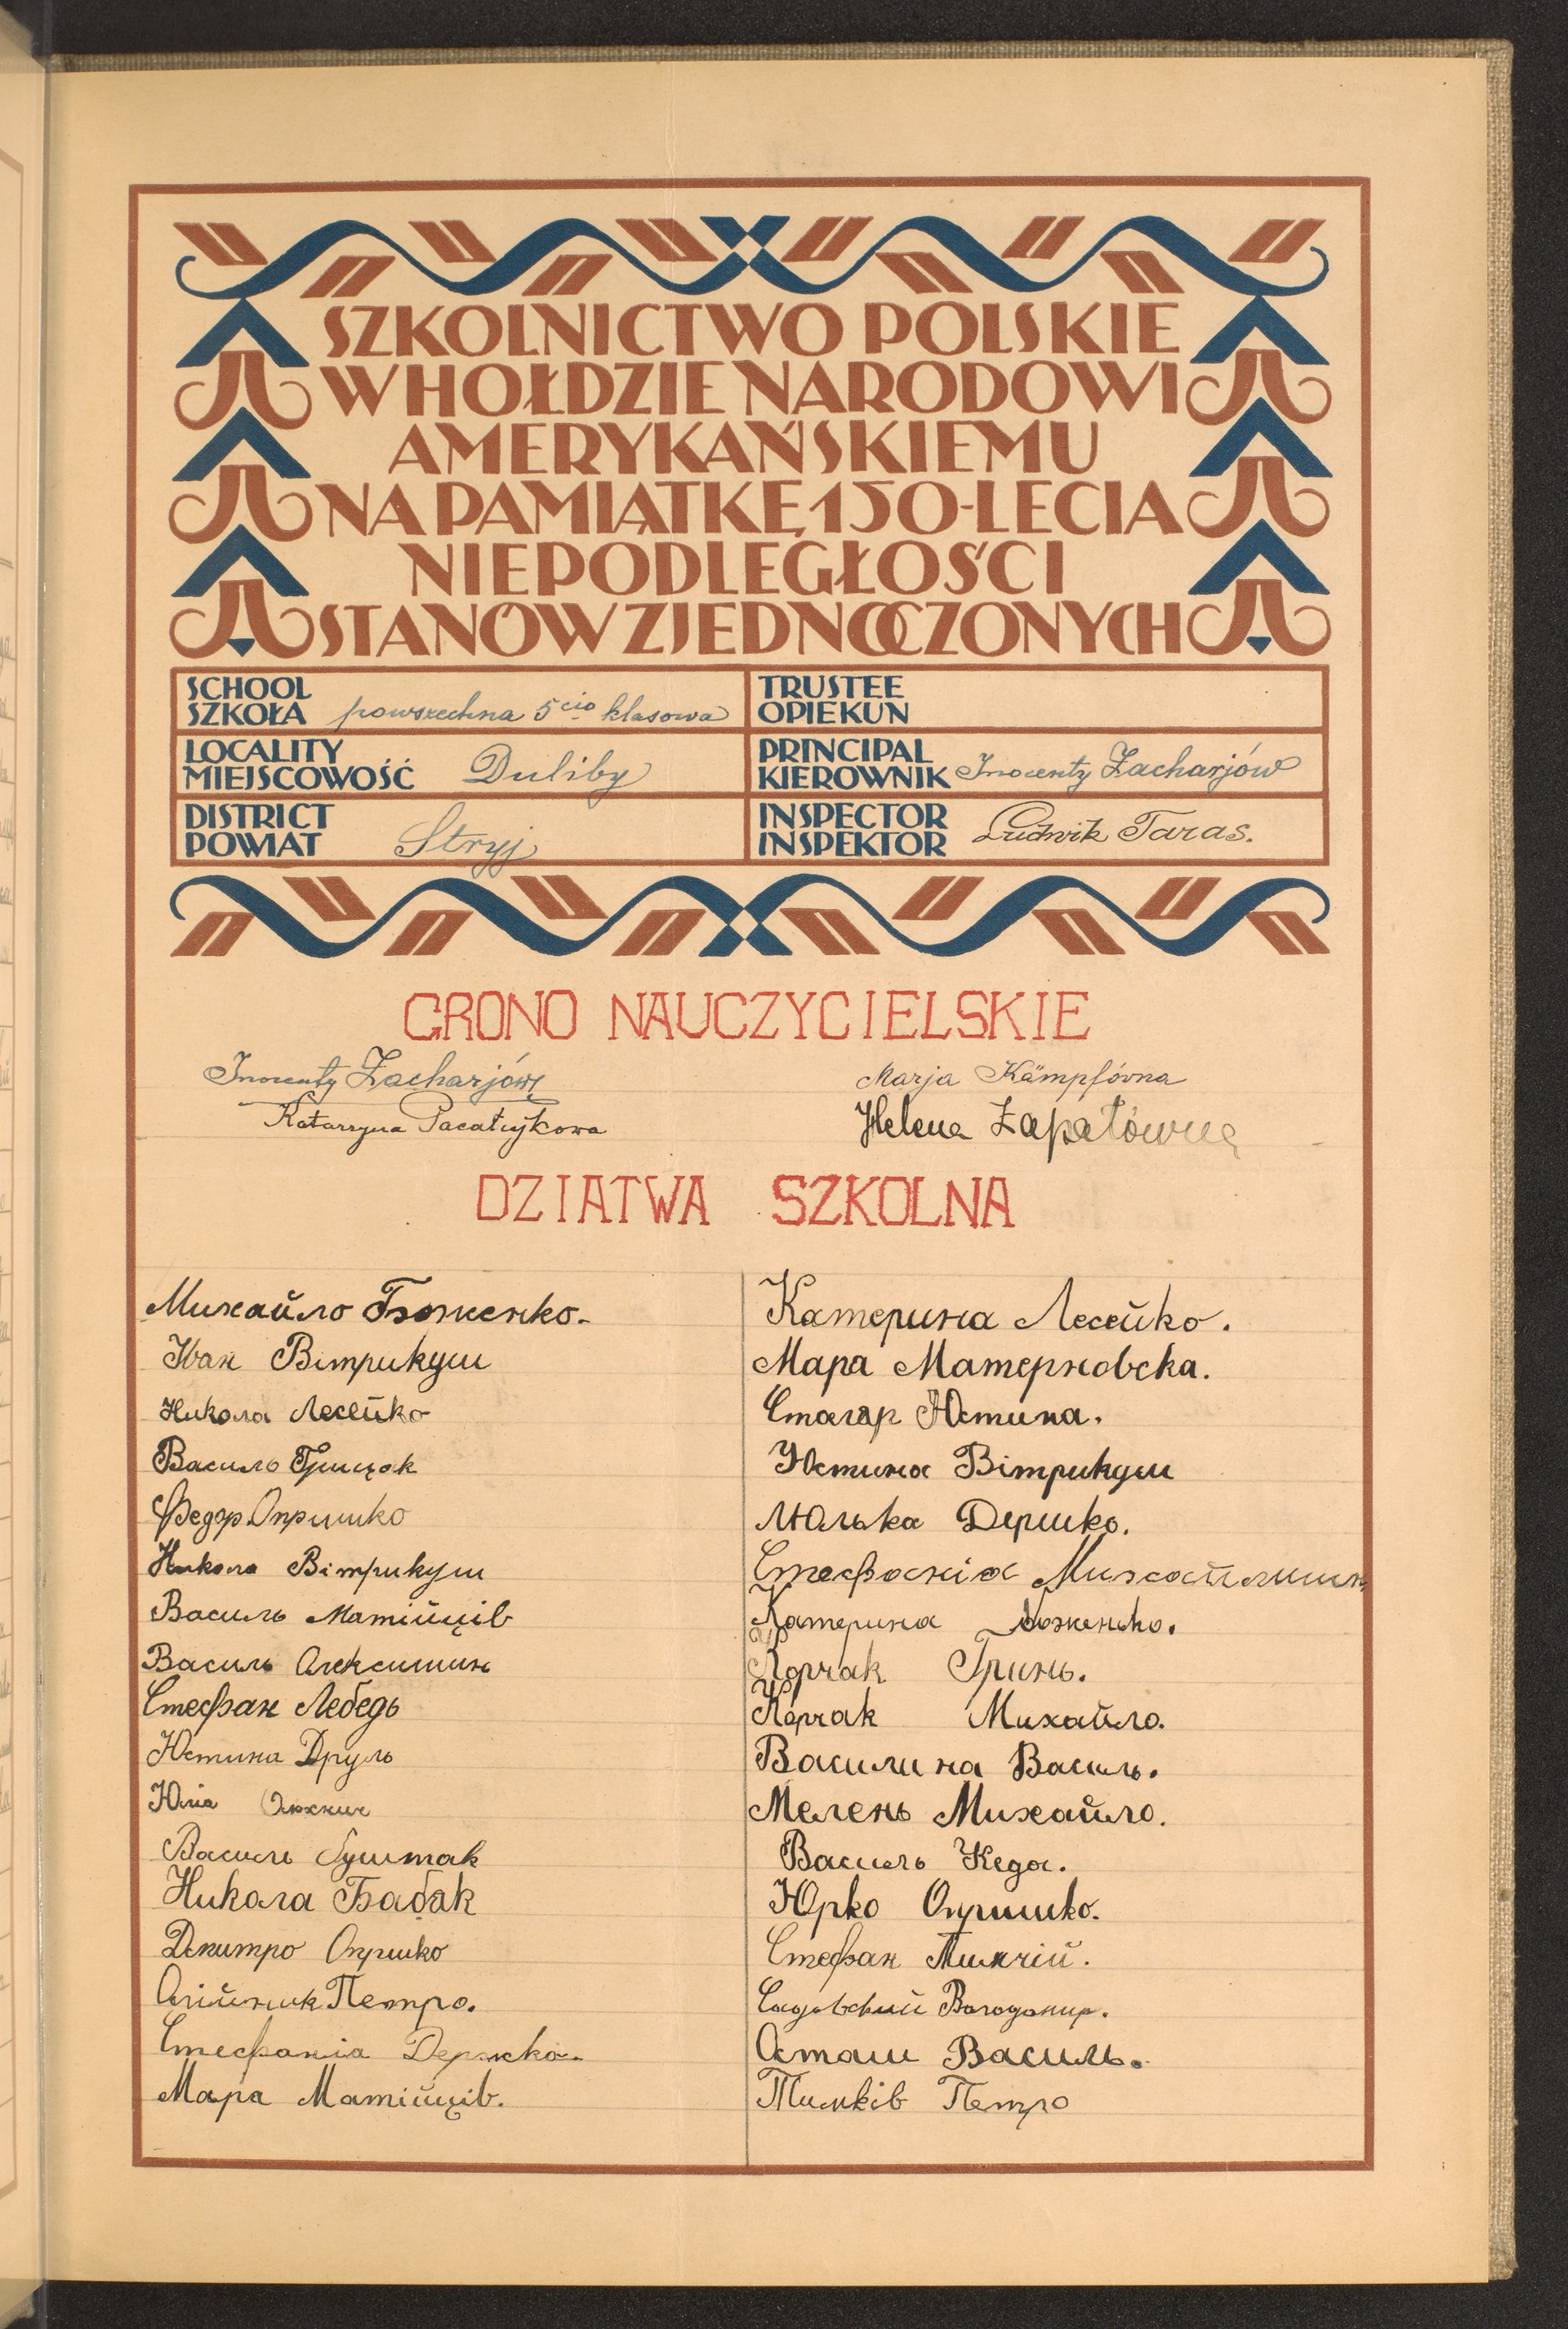 SZKOLNICTWO POLSKIE
W HOŁDZIE NARODOWI
AMERYKAŃSKIEMU
NA PAMIĄTKĘ 150-LECIA
NIEPODLEGŁOŚCI
STANÓW ZJEDNOCZONYCH
SCHOOL
SZKOŁA powszechna 5cio klasowa
TRUSTEE
OPIEKUN
LOCALITY
MIEJSCOWOŚĆ Duliby
PRINCIPAL
KIEROWNIK Inocenty Zacharjów
DISTRICT
POWIAT Stryj
INSPECTOR
INSPEKTOR Ludwik Taras.
GRONO NAUCZYCIELSKIE
Inocenty Zacharjów
Katarzyna
Marja Kämpfówna
Helena Łapatówna
DZIATWA SZKOLNA
Михайло Боженко.
Іван Вітрикуш
Никола Лесейко
Василь Грицак
Федор Опришко
Никола Вітрикуш
Василь Матійців
Василь Алексишин
Стефан Лебедь
Юстина Друль
Юлія
Василь Гуштак
Никола Бабяк
Дмитро Опришко
Олійник Петро.
Стефанія
Мара Матійців.
Катерина Лесейко.
Мара Матерновска.
Стаяр Юстина.
Юстина Вітрикуш
Юлька Дершко.
Стефанія Михайлишин
Катерина Боженько.
Корчак Гринь.
Корчак Михайло.
Василина Василь.
Мелень Михайло.
Василь Кеда.
Юрко Опришко.
Стефан Тимчій.
Садовский Володимир.
Осташ Василь.
Тимків Петро